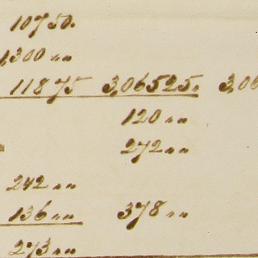 10750.
1,300 „„
11875 3,06525. 3,06
120 „„
272 „„
242 „„
136 „„ 378 „„
273 „„